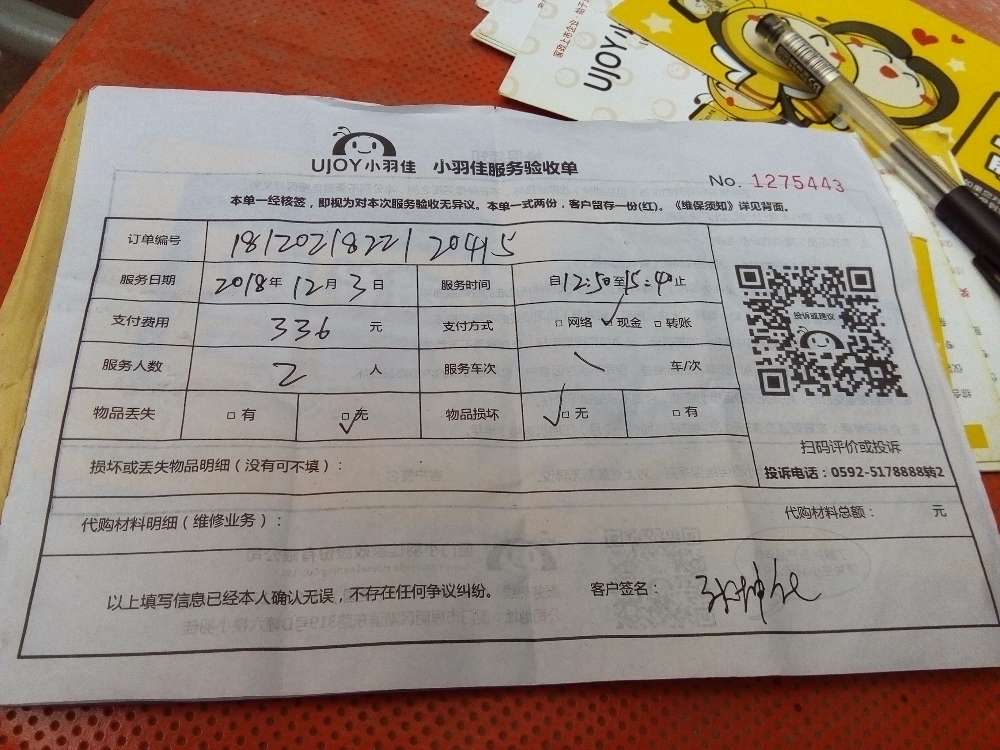 家政上市企业
UJOY小
UJOY小羽佳 小羽佳服务验收单
No. 1275443
本单一经核签，即视为对本次服务验收无异议。本单一式两份，客户留存一份(红)。《维保须知》详见背面。
订单编号 181202182212045
服务日期 2018年12月3日 服务时间 自12:50至15:40止
支付费用 336 元 支付方式 □网络 □现金 □转账
服务人数 2 人 服务车次 车/次
物品丢失 □有 □无 物品损坏 □无 □有
投诉或建议
扫码评价或投诉
投诉电话：0592-5178888转2
损坏或丢失物品明细（没有可不填）：
代购材料明细（维修业务）： 代购材料总额： 元
以上填写信息已经本人确认无误，不存在任何争议纠纷。 客户签名：